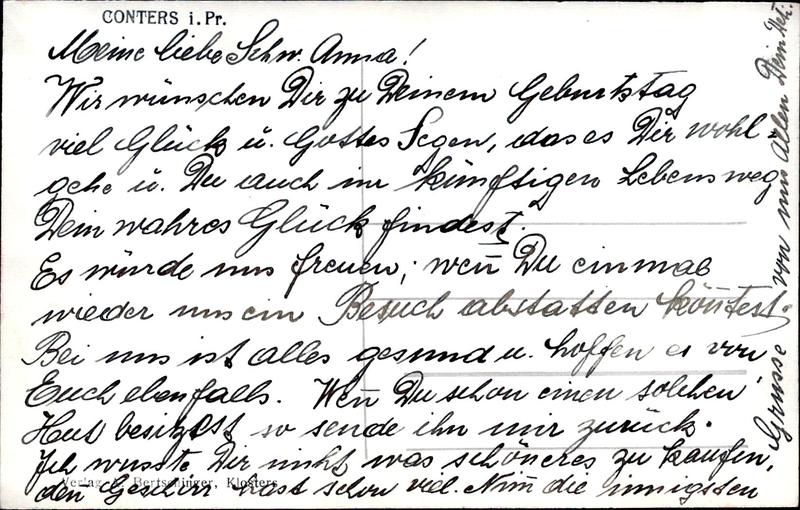 CONTERS i. Pr.
Meine liebe Schw. Anna!
Wir wünschen Dir zu Deinem Geburtstag
viel Glück u. Gottes Segen, das es Dir wohl-
gehe u. Du auch im künftigen Lebensweg
Dein wahres Glück findest.
Es würde uns freuen, wen̄ Du einmal
wieder uns ein Besuch abstatten kön̄test.
Bei uns ist alles gesund u. hoffen es von
Euch ebenfalls. Wen̄ Du schon einen solchen
Hut besizest so sende ihn mir zurück.
Ich wusste Dir nicht was schöneres zu kaufen,
den Geschirr hast schon viel. Nim̄ die innigsten
Grüsse von uns Allen Dein
Verlag A. Bertschinger, Klosters